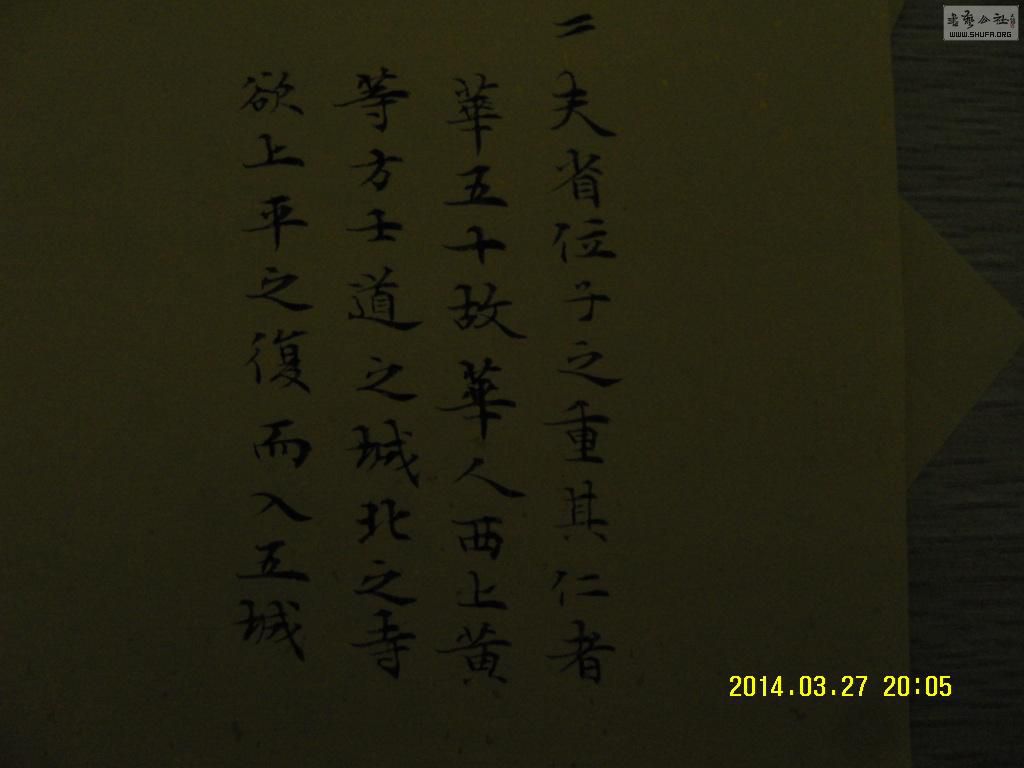 二夫省位子之重其仁者
華五十故華人西上黄
等方士道之城北之寺
欲上平之復而入五城
2014.03.27 20:05
書藝公社
WWW.SHUFA.ORG